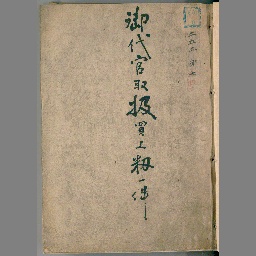 御代官取扱買上籾一件